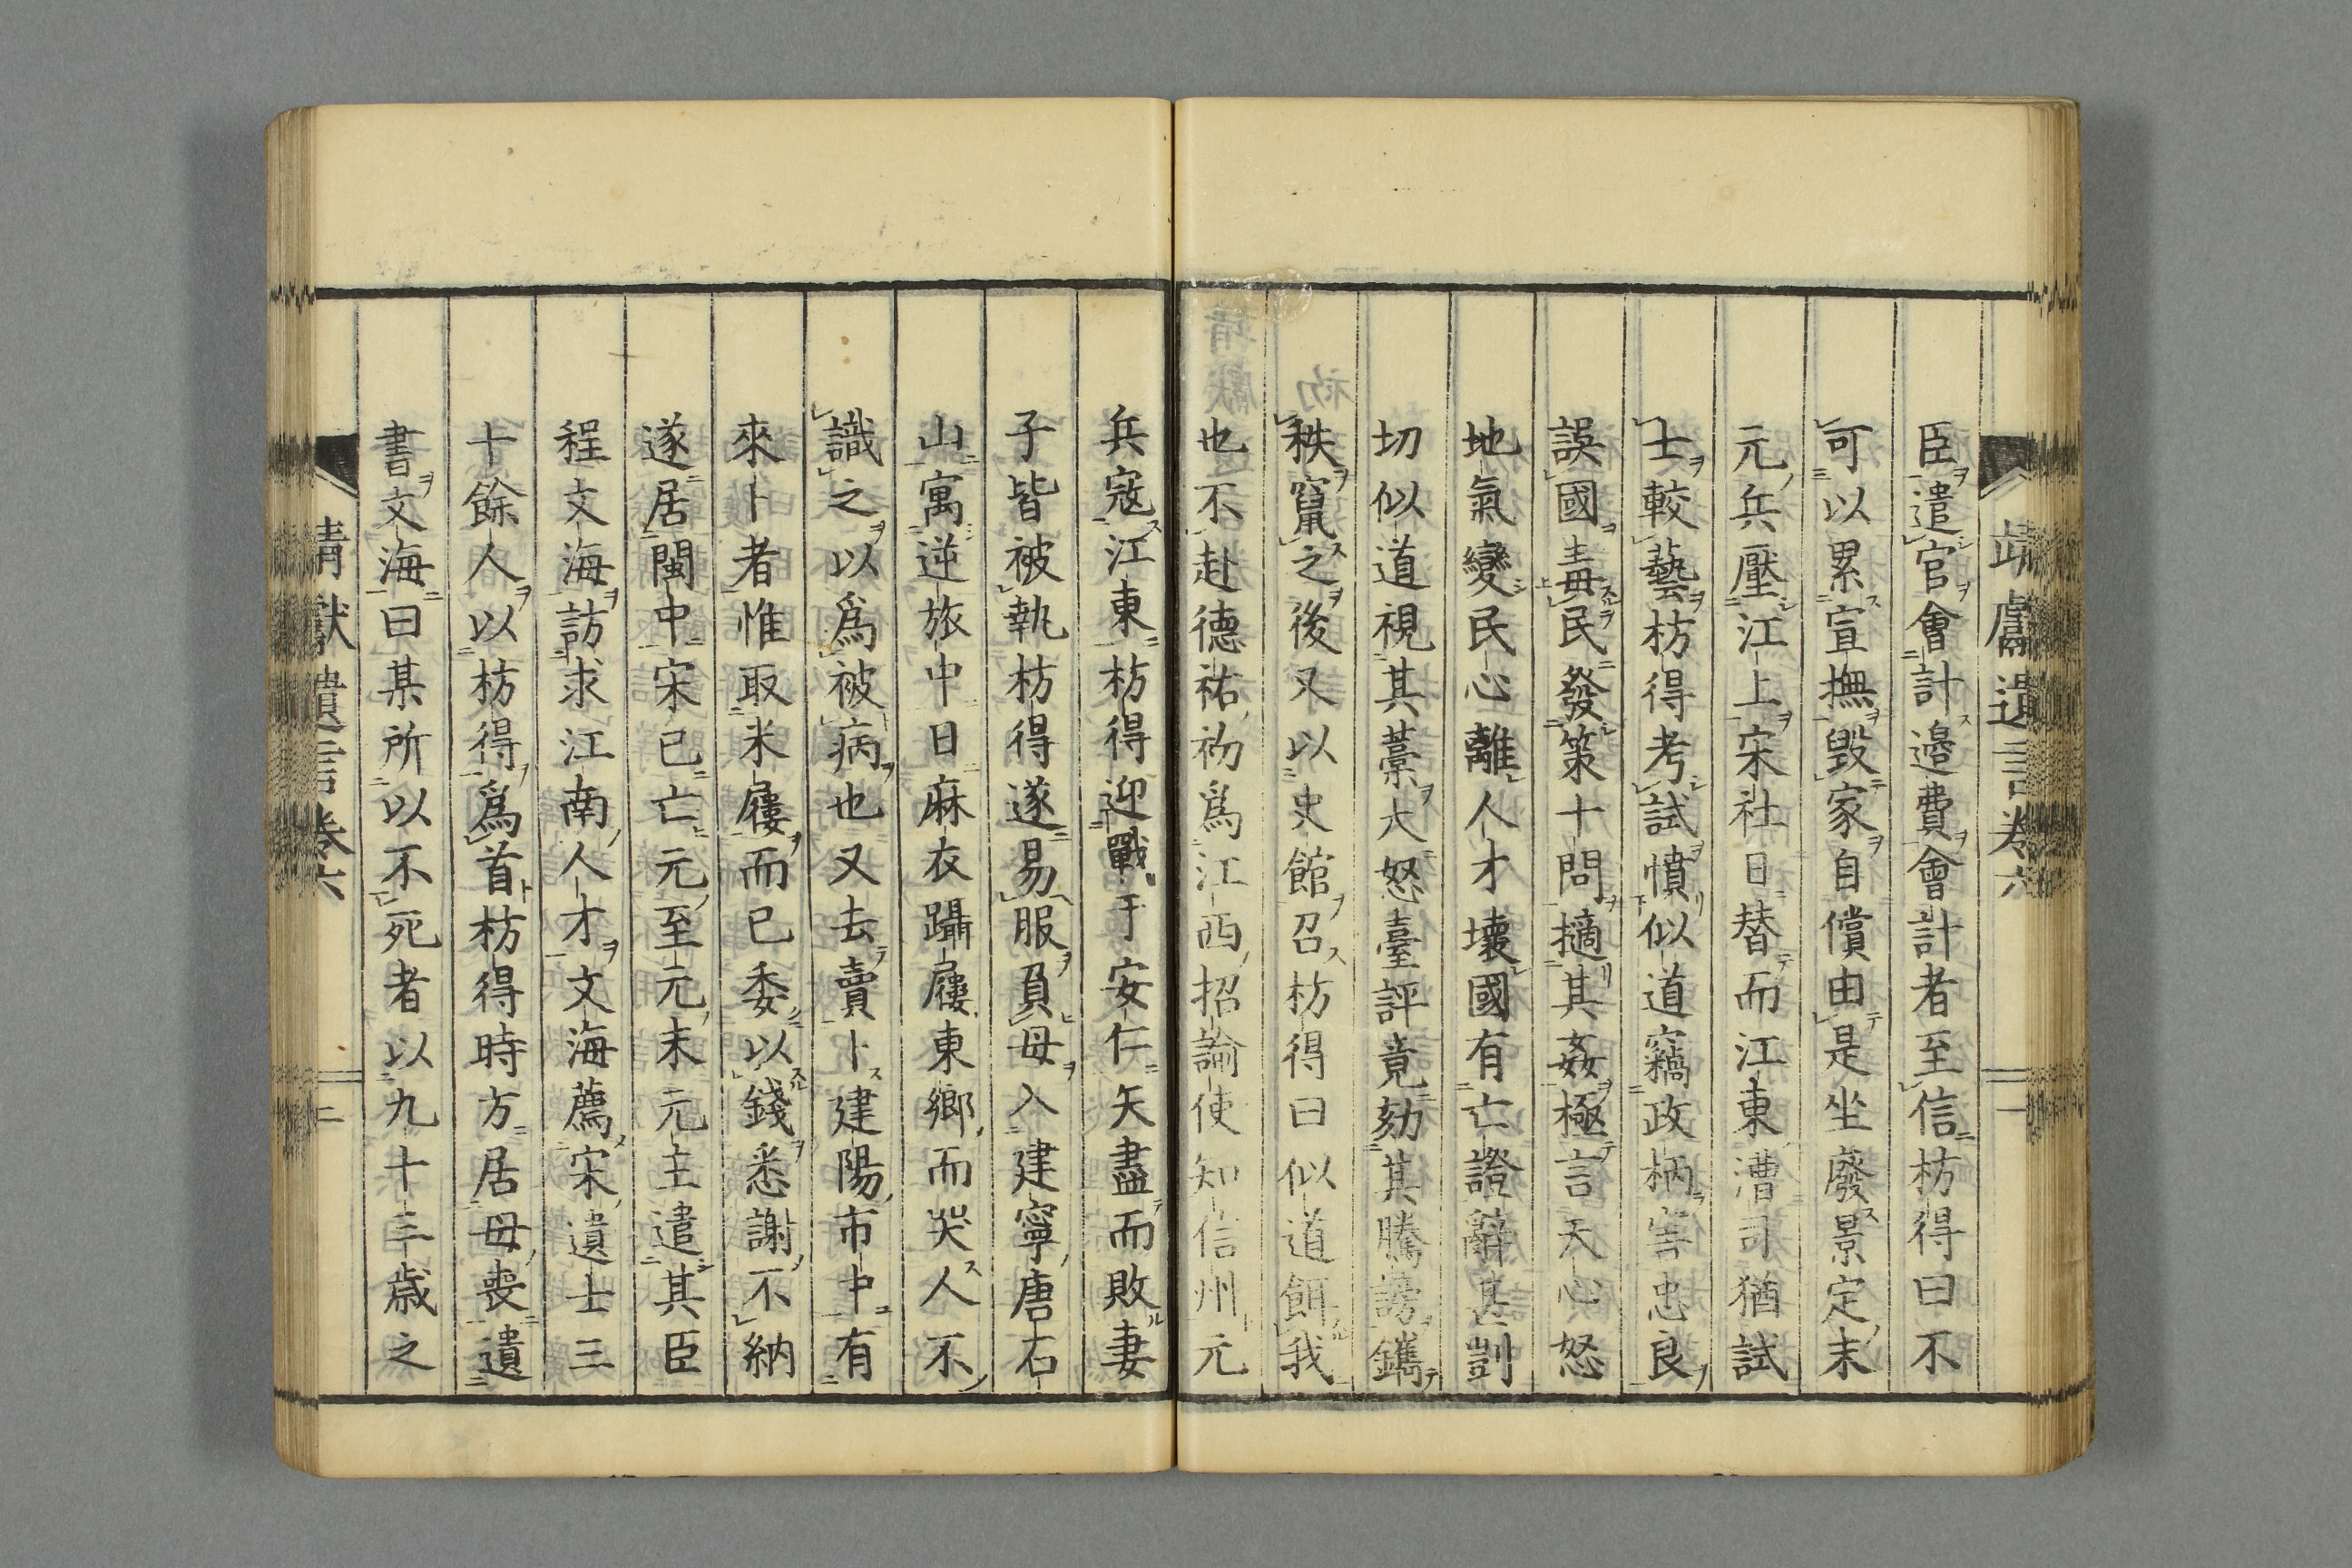 靖獻遺言卷六 一
臣遣官會計邉費會計者至信枋得曰不
可以累宣撫毀家自償由是坐廢景定末
元兵壓江上宋社日替而江東漕司猶試
士較藝枋得考試憤似道竊政柄害忠良
誤國毒民發策十問擿其姦極言天心怒
地氣變民心離人才壞國有亡證辭甚剴
切似道視其藁大怒臺評竟劾其騰謗鐫
秩竄之後又以史館召枋得曰似道餌我
也不赴德祐初爲江西招諭使知信州元
兵寇江東枋得迎戰于安仁矢盡而敗妻
子皆被執枋得遂易服負母入建寧唐石
山寓逆旅中日麻衣躡屨東鄉而哭人不
識之以爲被病也又去賣卜建陽市中有
來卜者惟取米屨而已委以錢悉謝不納
遂居閩中宋已亡元至元末元主遣其臣
程文海訪求江南人才文海薦宋遺士三
十餘人以枋得爲首枋得時方居母喪遺
書文海曰某所以不死者以九十三歲之
靖獻遺言卷六 二